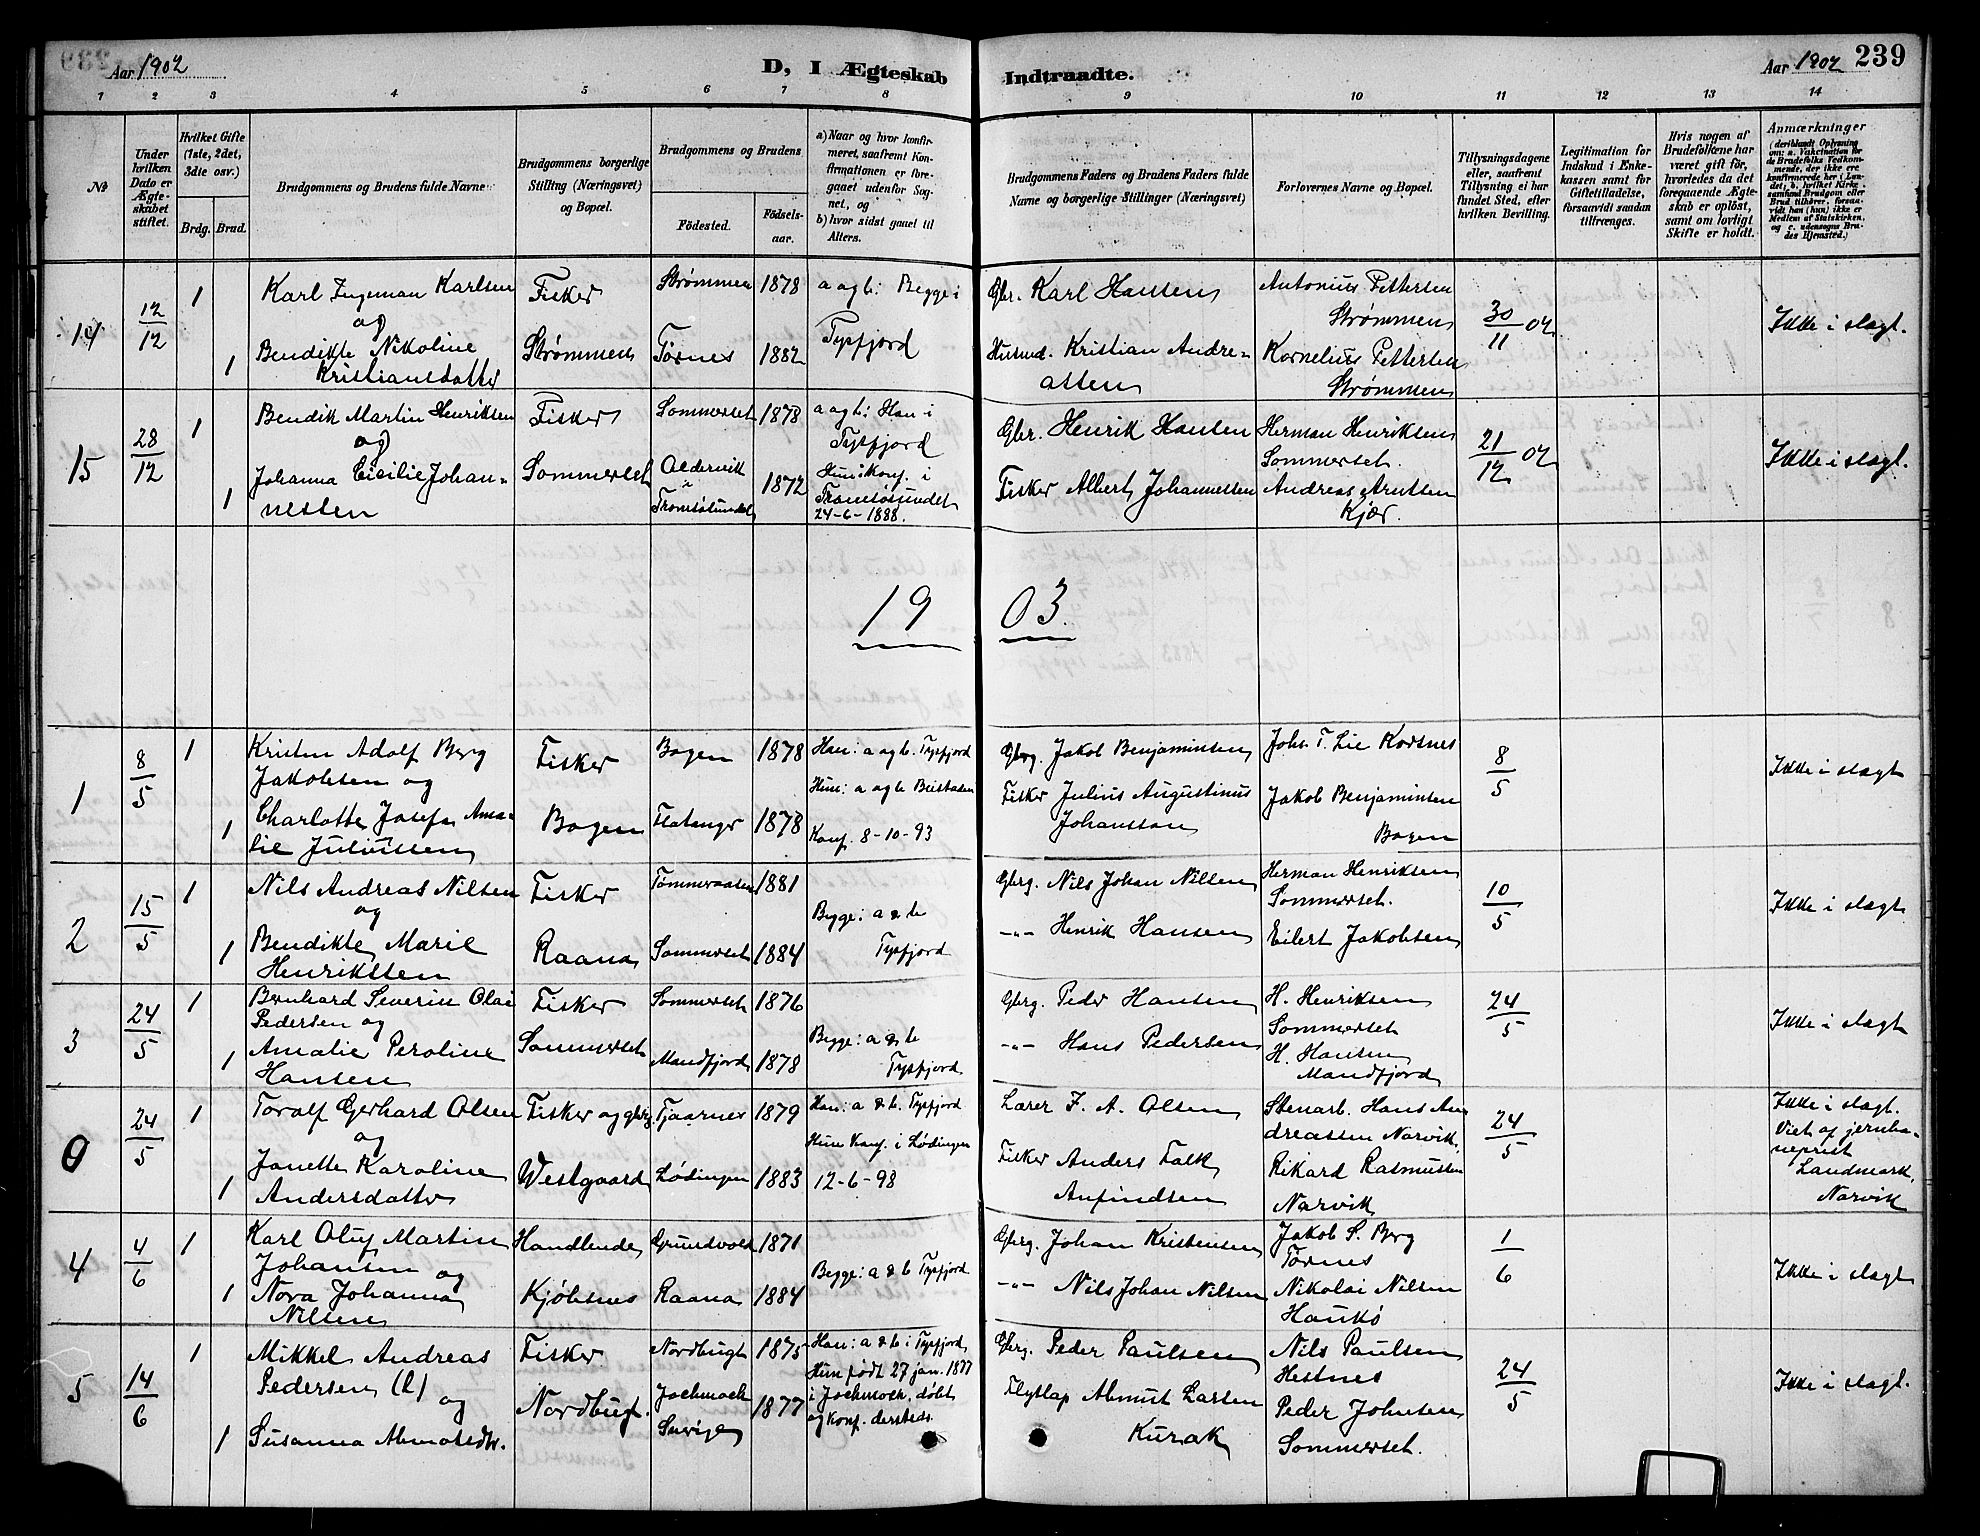 Aar 1902
D, I Ægteskab Indtraadte.
Aar 1902 239
1 2 3 4 5 6 7 8 9 10 11 12 13 14
№
Under hvilken Dato er Ægteskabet stiftet.
Hvilket Gifte (1ste, 2det, 3die osv.)
Brdg. Brud.
Brudgommens og Brudens fulde Navne
Brudgommens borgerlige Stilling (Næringsvei) og Bopæl.
Brudgommens og Brudens
Fødested.
Fødselsaar.
a) Naar og hvor konfirmeret, saafremt Konfirmationen er foregaaet udenfor Sognet, og
b) hvor sidst gaaet til Alters.
Brudgommens Faders og Brudens Faders fulde Navne og borgerlige Stillinger (Næringsvei)
Forlovernes Navne og Bopæl.
Tillysningsdagene eller, saafremt Tillysning ei har fundet Sted, efter hvilken Bevilling.
Legitimation for Indskud i Enkekassen samt for Giftetilladelse, forsaavidt saadan tilfrænges.
Hvis nogen af Brudefolkene har været gift før, hvorledes da det foregaaende Ægteskab er opløst, samt om lovligt Skifte er holdt.
Anmærkninger (deriblandt Oplysning om: a. Vakcination for de Brudefolks Vedkommende, der ikke ere konfirmerede her i Landet; b. hvilket Kirkesamfund Brudgom eller Brud tilhører, forsaavidt han (hun) ikke er Medlem af Statskirken, og c. udensogns Brudes Hjemsted.)
14 12/12 1 Karl Ingeman Karlsen Fisker Strømmen 1878 a og b: Begge i Gbr. Karl Hansen Antonius Pettersen 30/11 02 Ikke i slægt.
og Strømmen
1 Bendikte Nikoline Strømmen Tørnes 1882 Tysfjord Husmd. Kristian Andre= Kornelius Pettersen
Kristiansdatter assen Strømmen
15 28/12 1 Bendik Martin Henriksen Fisker Sommerset 1878 a og b: Han i Gbr. Henrik Hansen Herman Henriksen 21/12 02 Ikke i slægt.
og Tysfjord Sommerset.
1 Johanna Cicilie Johan= Sommerset Aldervik 1872 Hun: Konf. i Fisker Albert Johannessen Andreas Arntsen
nessen Tromsøsundet Tromsøsundet Kjær.
24-6-1888.
19 03.
1 8/5 1 Kristen Adolf Berg Fisker Bogen 1878 Han: a og b. Tysfjord Gbrg. Jakob Benjaminsen Johs. T. Lie Korsnes 8/5 Ikke i slægt
Jakobsen og Hun: a og b Beistaden
1 Charlotte Josefa Ama= Bogen Flatanger 1878 Konf. 8-10-93 Fisker Julius Augustinus Jakob Benjaminsen
lie Juliussen Johanssøn Bogen
2 15/5 1 Nils Andreas Nilsen Fisker Tømmeraasen 1881 Gbrg. Nils Johan Nilsen Herman Henriksen 10/5 Ikke i slægt
og Begge: a & b Sommerset.
1 Bendikte Marie Raana Sommerset 1884 Tysfjord -"- Henrik Hansen Eilert Jakobsen
Henrikssen
3 24/5 1 Bernhard Severin Olai Fisker Sommerset 1876 Gbrg. Peder Hansen H. Henriksen 24/5 Ikke i slægt
Pedersen og Begge: a & b Sommerset
1 Amalie Peroline Sommerset Mandfjord 1878 Tysfjord -"- Hans Pedersen H. Hansen
Hansen Mandfjord
0 24/5 1 Toralf Gerhard Olsen Fisker og gbrg. Tjaarnes 1879 Han: a & b. Tysfjord Lærer F. A. Olsen Stenarb. Hans An 24/5 Ikke i slægt.
og Hun Konf. i Lødingen dreassen Narvik. Viet af jernba=
1 Janette Karoline Westgaard Lødingen 1883 12-6-98 Fisker Anders Falk Rikard Rasmussen neprest
Andersdatter Anfindsen Narvik Landmark,
Narvik
4 4/6 1 Karl Oluf Martin Handlende Grundvold 1871 Gbrg. Johan Kristensen Jakob S. Berg 1/6 Ikke i slægt
Johansen og Begge: a & b Tysfjord Tørnes
1 Nora Johanna Kjøbsnes Raana 1884 -"- Nils Johan Nilsen Nikolai Nilsen
Nilsen Haukø
5 14/6 1 Mikkel Andreas Fisker Nordbugt 1875 Han: a & b i Tysfjord, Gbrg. Peder Paulsen Nils Paulsen 24/5 Ikke i slægt.
Pedersen (l) og Hun født 27 jan. 1877 Hestnes
Nordbugt. Jockmock 1877 i Jockmock, døbt Flytlap Abmut Larsen Peder Johnsen
1 Susanna Abmutsdtr. Sverige og konf. dersteds. Kurak Sommerset.